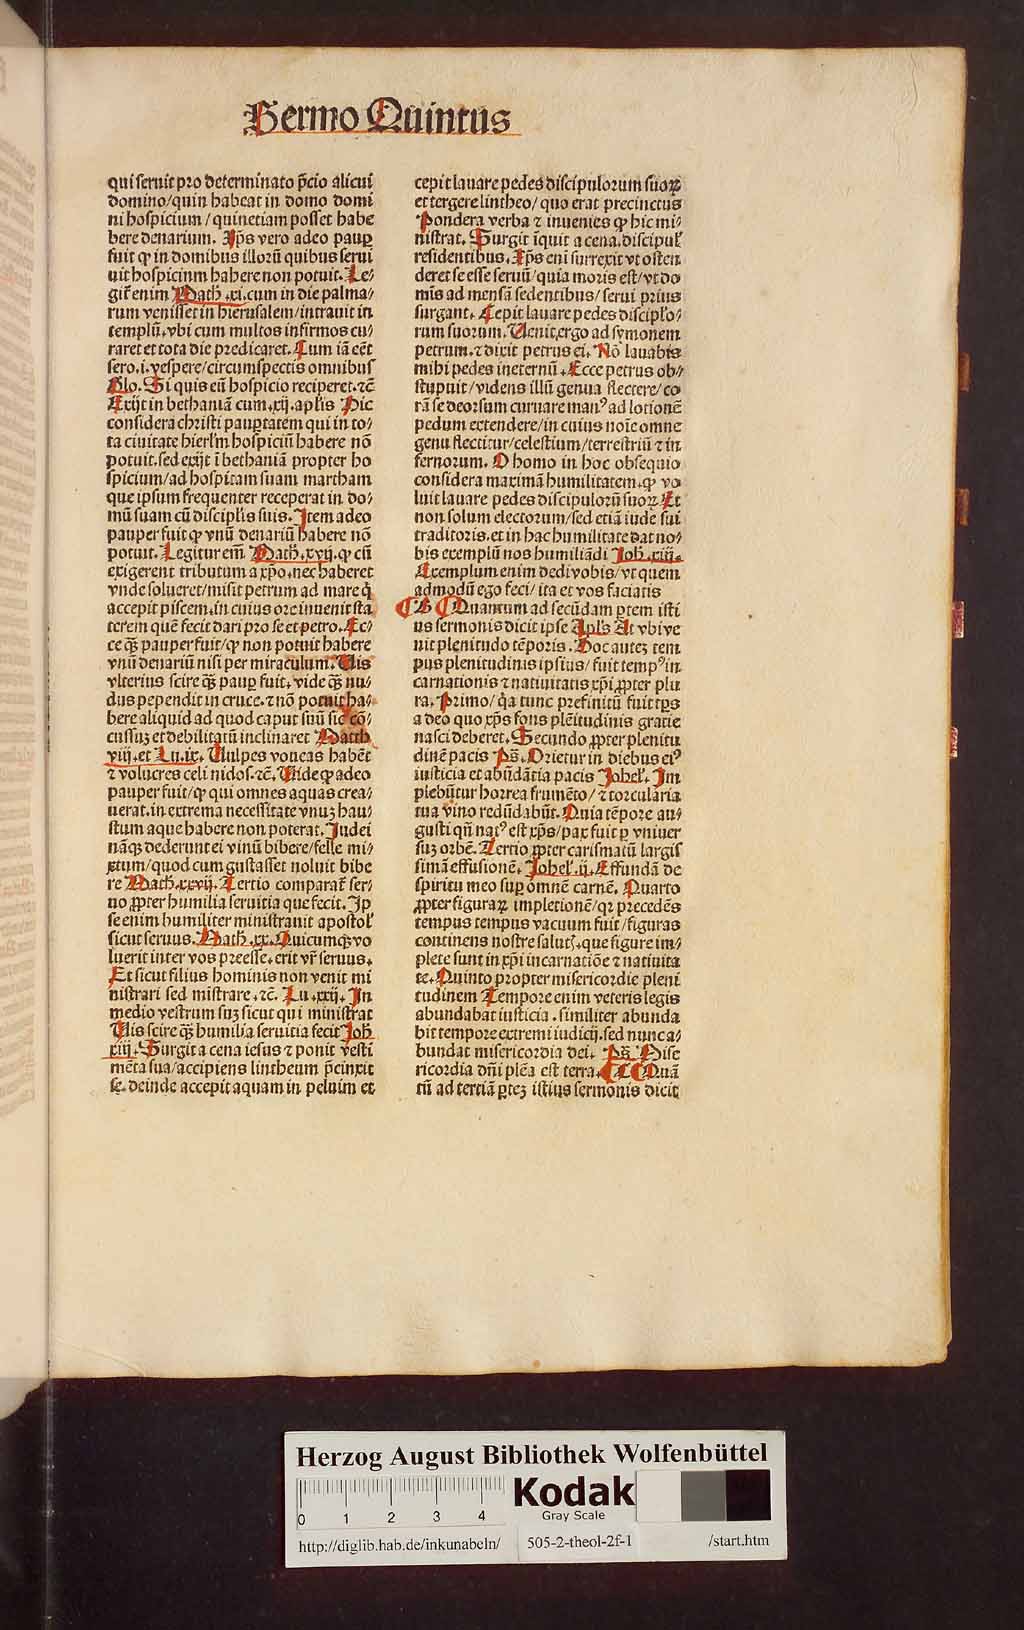 Sermo Quintus
qui seruit pro determinato p̄cio alicui
domino/quin habeat in domo domi
ni hospicium/quinetiam posset habe
bere denarium. Ip̄s vero adeo paup̲
fuit ꝙ in domibus illorū quibus serui
uit hospicium habere non potuit. Le⸗
git̄ enim Math̄.xi.cum in die palma⸗
rum venisset in hierusalem/intrauit in
templū.vbi cum multos infirmos cu⸗
raret et tota die predicaret. Cum iā eēt
sero.i.vespere/circumspectis omnibus
Glo. Si quis eū hospicio reciperet.⁊c̄
Exijt in bethaniā cum.xij.apl̄is Hic
considera christi paup̲tatem qui in to⸗
ta ciuitate hierl̄m hospiciū habere nō
potuit.sed exijt ī bethaniā propter ho
spicium/ad hospitam suam martham
que ipsum frequenter receperat in do⸗
mū suam cū discipl̄is suis. Item adeo
pauper fuit ꝙ vnū denariū habere nō
potuit. Legitur em̄. Math̄.xvij.ꝙ cū
exigerent tributum a xp̄o.nec haberet
vnde solueret/misit petrum ad mare q̇
accepit piscem.in cuius ore inuenit sta
terem quē fecit dari pro se et petro. Ec⸗
ce qꝫ pauper fuit/ꝙ non potuit habere
vnū denariū nisi per miraculum. Uis
vlterius scire qꝫ paup̲ fuit. vide qꝫ nu⸗
dus pependit in cruce.⁊ nō potuit ha⸗
bere aliquid ad quod caput suū sic cō⸗
cussuꝫ et debilitatū inclinaret Matth
viij.et Lu.ix. Uulpes voueas habēt
⁊ volucres celi nidos.⁊c̄. Uide ꝙ adeo
pauper fuit/ꝙ qui omnes aquas crea⸗
uerat.in extrema necessitate vnuꝫ hau⸗
stum aque habere non poterat. Iudei
nāqꝫ dederunt ei vinū bibere/felle mi⸗
xtum/quod cum gustasset noluit bibe
re Math̄.xxvij. Tertio comparat̄ ser⸗
no ꝓpter humilia seruitia que fecit. Ip
se enim humiliter ministrauit apostol̄
sicut seruus. Math̄.xx. Quicumqꝫ vo
luerit inter vos preesse.erit vr̄ seruus.
Et sicut filius hominis non venit mi
nistrari sed mistrare.⁊c̄. Lu.xxij. In
medio vestrum suꝫ sicut qui ministrat
Uis scire qꝫ humilia seruitia fecit Joh̄
xiij. Surgit a cena iesus ⁊ ponit vesti
mēta sua/accipiens lintheum p̄cinxit
se. deinde accepit aquam in peluim et
cepit lauare pedes discipulorum suoꝝ
et tergere lintheo/quo erat precinctus
Pondera verba ⁊ inuenies ꝙ hic mi⸗
nistrat. Surgit īquit a cena.discipul̄
residentibus. Ip̄s em̄ surrexit vt osten
deret se esse seruū/quia moris est/vt do
mīs ad mensā sedentibus/serui prius
surgant. Cepit lauare pedes discipl̄o⸗
rum suorum. Uenit.ergo ad symonem
petrum.⁊ dixit petrus ei. Nō lauabis
mihi pedes ineternū. Ecce petrus ob⸗
stupuit/videns illū genua flectere/co
rā se deorsum curuare manꝰ ad lotionē
pedum extendere/in cuius noīe omne
genu flectitur/celestium/terrestriū ⁊ in
fernorum. O homo in hoc obsequio
considera maximā humilitatem.ꝙ vo
luit lauare pedes discipulorū suoꝝ. Et
non solum electorum/sed etiā iude sui
traditoris.et in hac humilitate dat no⸗
bis exemplū nos humiliādi Joh̄.xiij.
Exemplum enim dedi vobis/vt quem
admodū ego feci/ita et vos faciatis
B Quantum ad secūdam ꝑtem isti
us sermonis dicit ipse Apl̄s At vbi ve
nit plenitudo tēporis. Hoc auteꝫ tem
pus plenitudinis ipsius/fuit tempꝰ in
carnationis ⁊ natiuitatis xp̄i ꝓpter plu
ra. Primo/q̇a tunc prefinitū fuit tp̄s
a deo quo xp̄s fons plēitudinis gratie
nasci deberet. Secundo ꝓpter plenitu
dinē pacis Ps̄. Orietur in diebus eiꝰ
iusticia et abūdātia pacis Johel̄. Im
plebūtur horrea frumēto/⁊ torcularia
tua vino redūdabūt. Quia tēpore au⸗
gusti qn̄ natꝰ est xp̄s/pax fuit ꝑ vniuer
suꝫ orbē. Tertio ꝓpter carismatū largis
simā effusionē. Johel̄.ij. Effundā de
spiritu meo sup̲ omnē carnē. Quarto
ꝓpter figuraꝝ impletionē/qꝛ precedēs
tempus tempus vacuum fuit/figuras
continens nostre salutꝭ.que figure im⸗
plete sunt in xp̄i incarnatiōe ⁊ natiuita
te. Quinto propter misericordie pleni
tudinem Tempore enim veteris legis
abundabat iusticia.similiter abunda
bit tempore extremi iudicij.sed nunc a⸗
bundat misericordia dei. Ps̄. Mise
ricordia dn̄i plēa est terra. C Quā
tū ad tertiā ꝑteꝫ istius sermonis dicit
Herzog August Bibliothek Wolfenbüttel
0 1 2 3 4
Kodak
Gray Scale
http://diglib.hab.de/inkunabeln/ 505-2-theol-2f-1 /start.htm